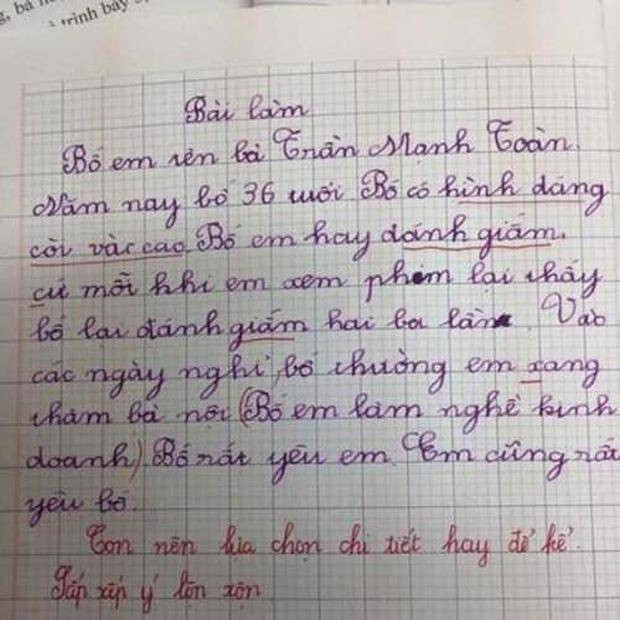 bà
trình bày
Bài làm
Bố em tên là Trần Mạnh Toàn.
Năm nay bố 36 tuổi Bố có hình dáng
còi và cao. Bố em hay đánh giắm.
cứ mỗi khi em xem phim lại thấy
bố lại đánh giắm hai ba lần. Vào
các ngày nghỉ, bố thường em xang
thăm bà nội (Bố em làm nghề kinh
doanh). Bố rất yêu em. Em cũng rất
yêu bố.
Con nên lựa chọn chi tiết hay để kể.
Sắp xếp ý lộn xộn